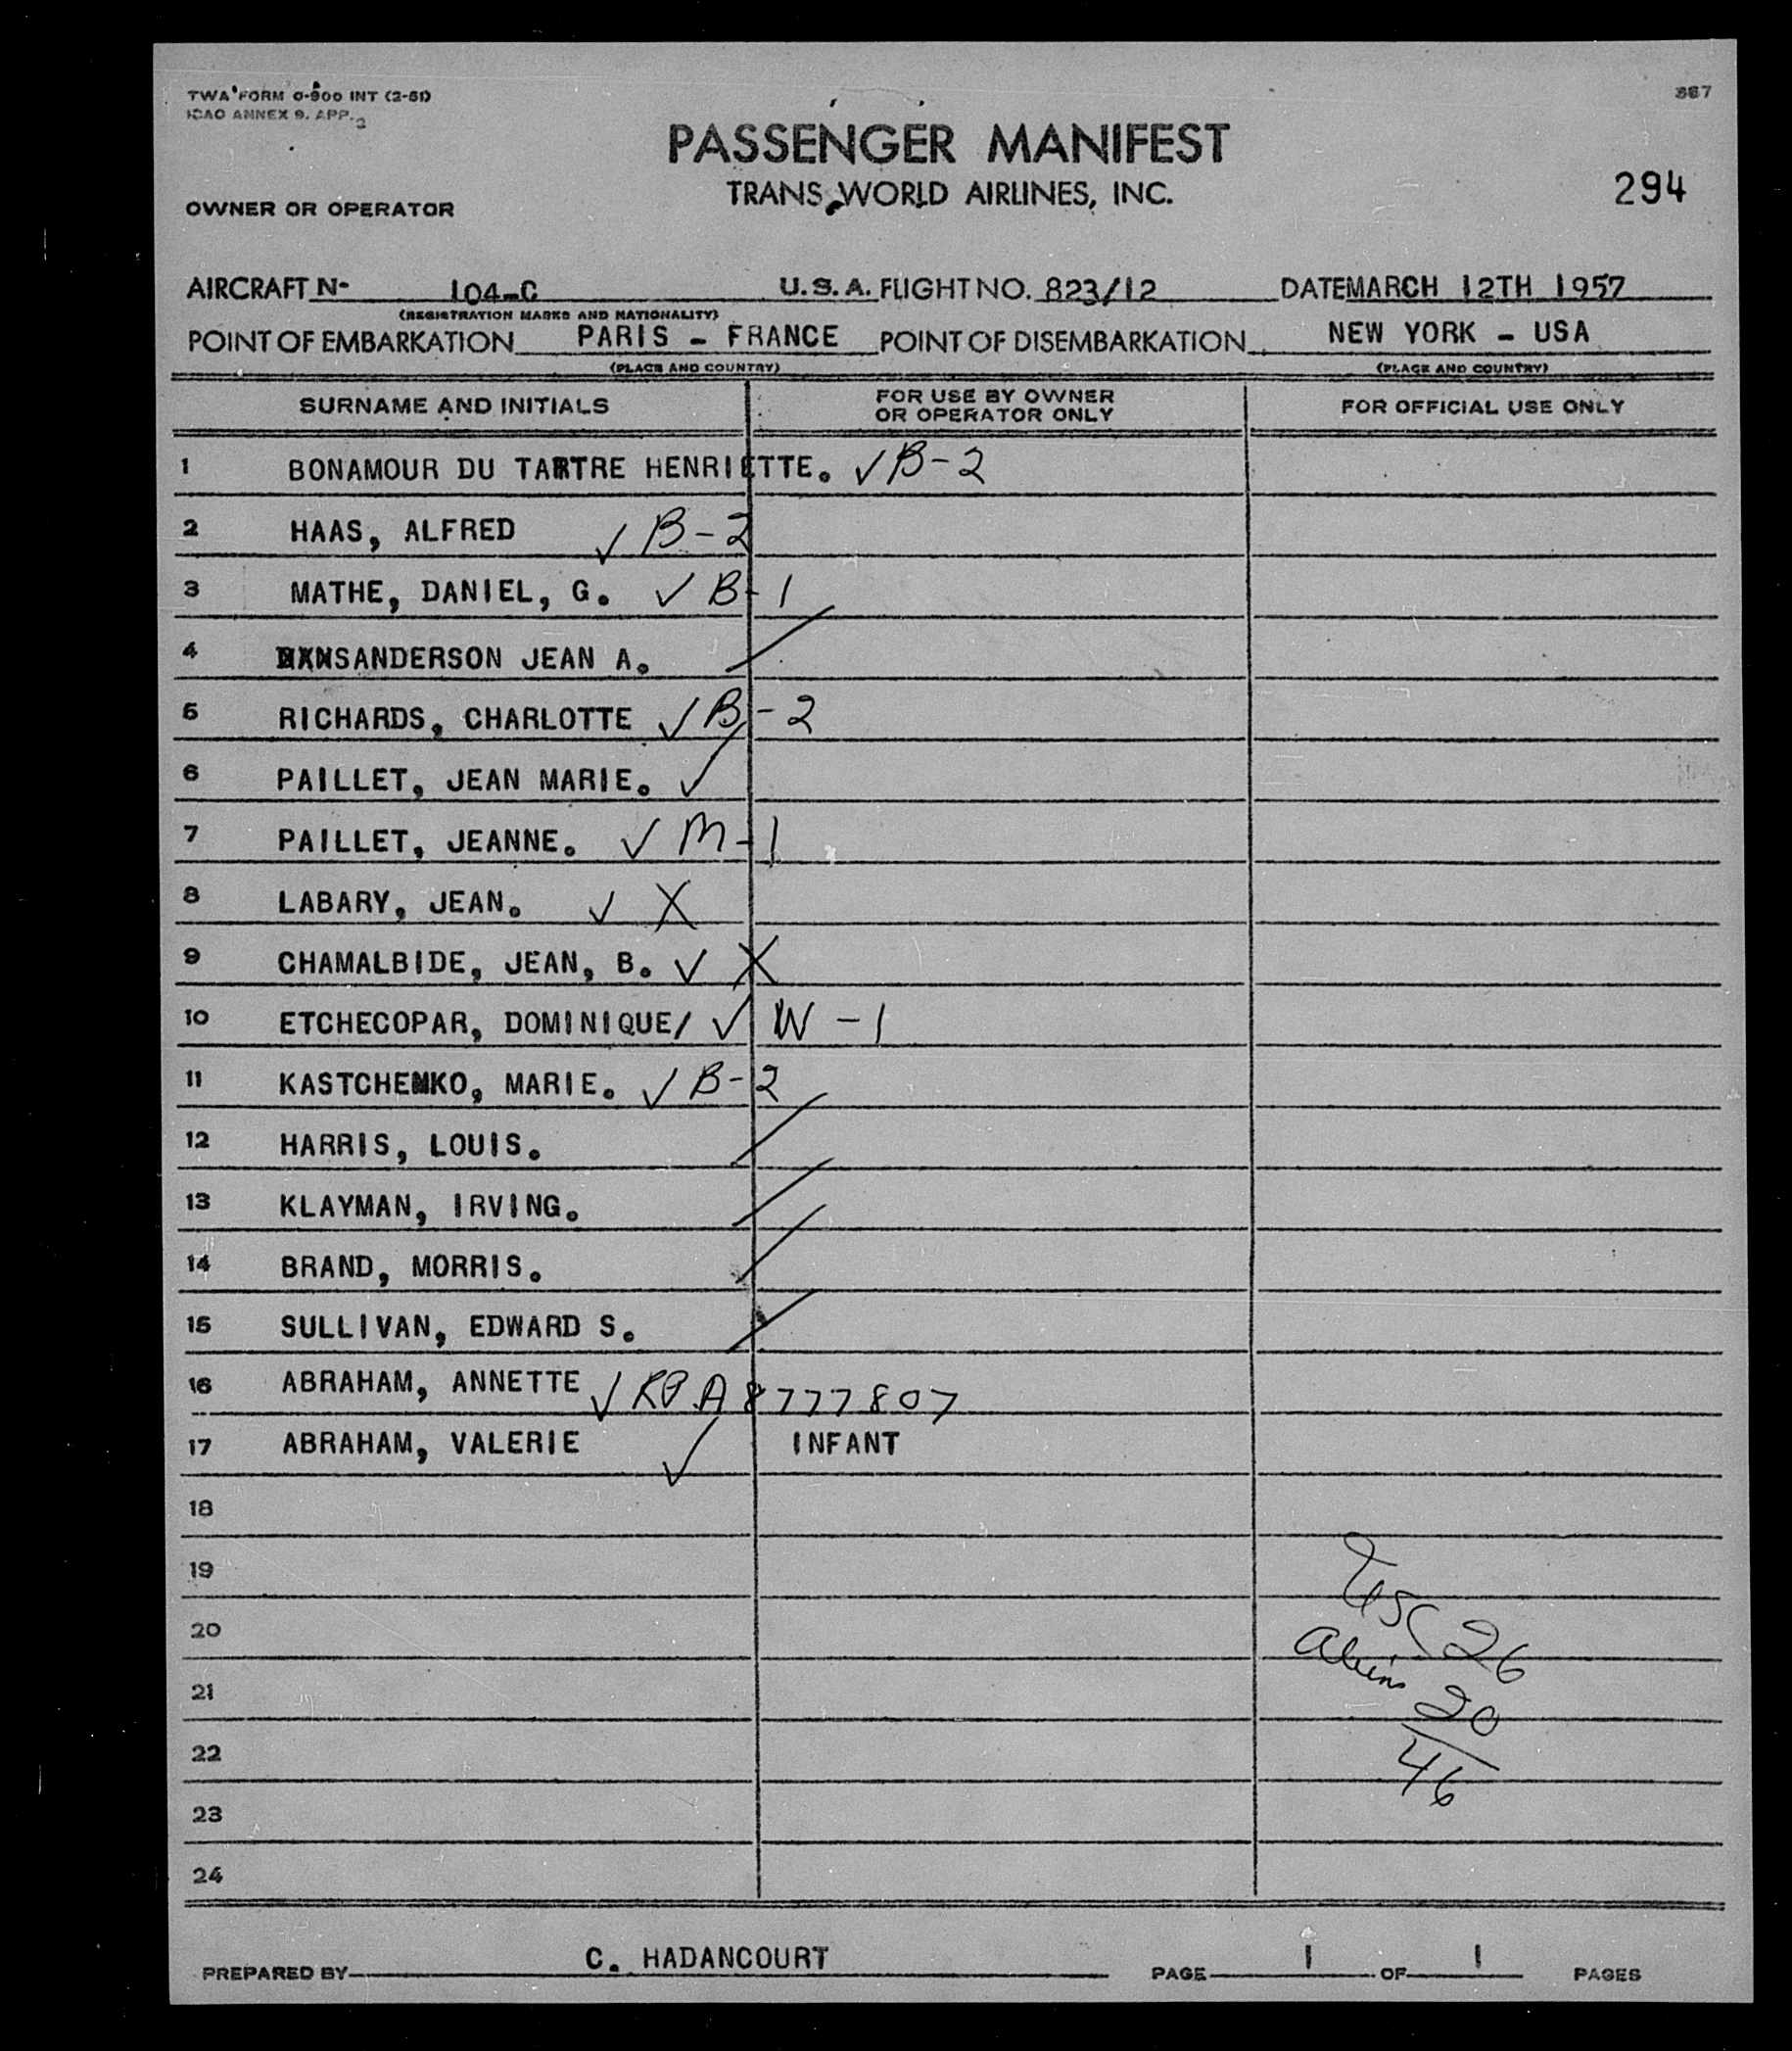 TWA FORM O-900 INT (2-51)
ICAO ANNEX 9, APP. 2
387
PASSENGER MANIFEST
TRANS WORLD AIRLINES, INC.
294
OWNER OR OPERATOR
AIRCRAFT N- 104-C U.S.A. FLIGHT NO. 823/12 DATE MARCH 12TH 1957
(REGISTRATION MARKS AND NATIONALITY)
POINT OF EMBARKATION PARIS - FRANCE POINT OF DISEMBARKATION NEW YORK - USA
(PLACE AND COUNTRY) (PLACE AND COUNTRY)
SURNAME AND INITIALS FOR USE BY OWNER OR OPERATOR ONLY FOR OFFICIAL USE ONLY
1 BONAMOUR DU TARTRE HENRIETTE. ✓ B-2
2 HAAS, ALFRED ✓ B-2
3 MATHE, DANIEL, G. ✓ B-1
4 SANDERSON JEAN A. /
5 RICHARDS, CHARLOTTE ✓ B-2
6 PAILLET, JEAN MARIE. ✓
7 PAILLET, JEANNE. ✓ M-1
8 LABARY, JEAN. ✓ X
9 CHAMALBIDE, JEAN, B. ✓ X
10 ETCHECOPAR, DOMINIQUE/ ✓ W-1
11 KASTCHENKO, MARIE. ✓ B-2
12 HARRIS, LOUIS. /
13 KLAYMAN, IRVING. /
14 BRAND, MORRIS. /
15 SULLIVAN, EDWARD S. /
16 ABRAHAM, ANNETTE ✓ RP A8777807
17 ABRAHAM, VALERIE ✓ INFANT
18
19
USC 26
20
Aliens 20
21
22
46
23
24
PREPARED BY C. HADANCOURT PAGE 1 OF 1 PAGES